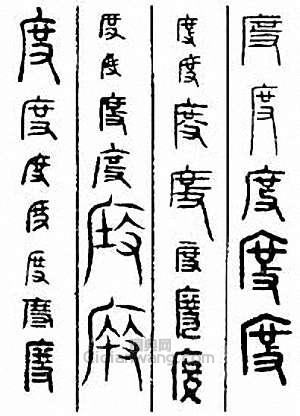 度度度度度
度度度度度度度
度度度度度度
度度度度度度度
Cidianwang.com